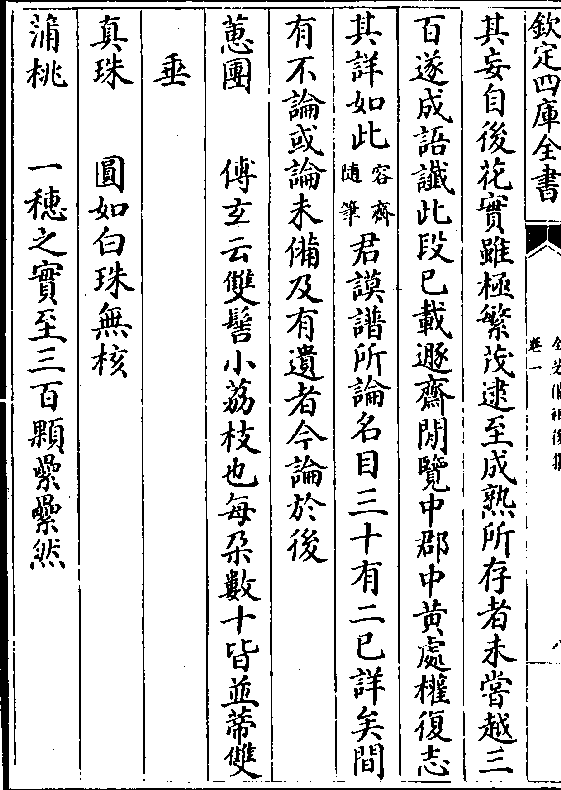 欽定四庫全書
卷一
其妄自後花實雖極繁茂逮至成熟所存者未嘗越三
百遂成語讖此段已載遯齋閒覽中郡中黄處權復志
其詳如此容齋隨筆君謨譜所論名目三十有二已詳矣間
有不論或論未備及有遺者今論於後
蔥團 傅玄云雙髻小荔枝也每朶數十皆並蔕雙
垂
真珠 圓如白珠無核
蒲桃 一穗之實至三百顆纍纍然